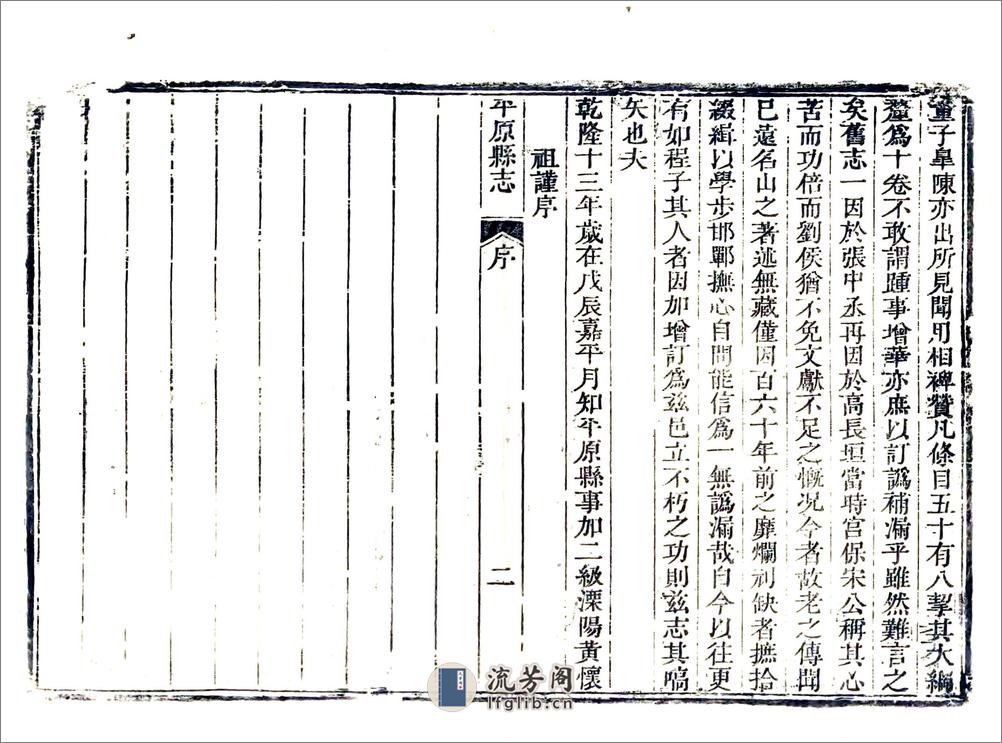 董子皐陳亦出所見聞用相裨贊凡條目五十有八挈其大綱
釐爲十卷不敢謂踵事增華亦庶以訂譌補漏乎雖然難言之
矣舊志一因於張中丞再因於高長垣當時宫保宋公稱其心
苦而功倍而劉侯猶不免文獻不足之慨况今者故老之傳聞
已遠名山之著述無藏僅因百六十年前之靡爛刓缺者摭拾
綴緝以學步邯鄲撫心自問能信爲一無譌漏哉自今以往更
有如程子其人者因加增訂爲兹邑立不朽之功則兹志其嚆
矢也夫
乾隆十三年歲在戊辰嘉平月知平原縣事加二級溧陽黄懷
祖謹序
平原縣志 序 二
流芳阁
lfglib.cn